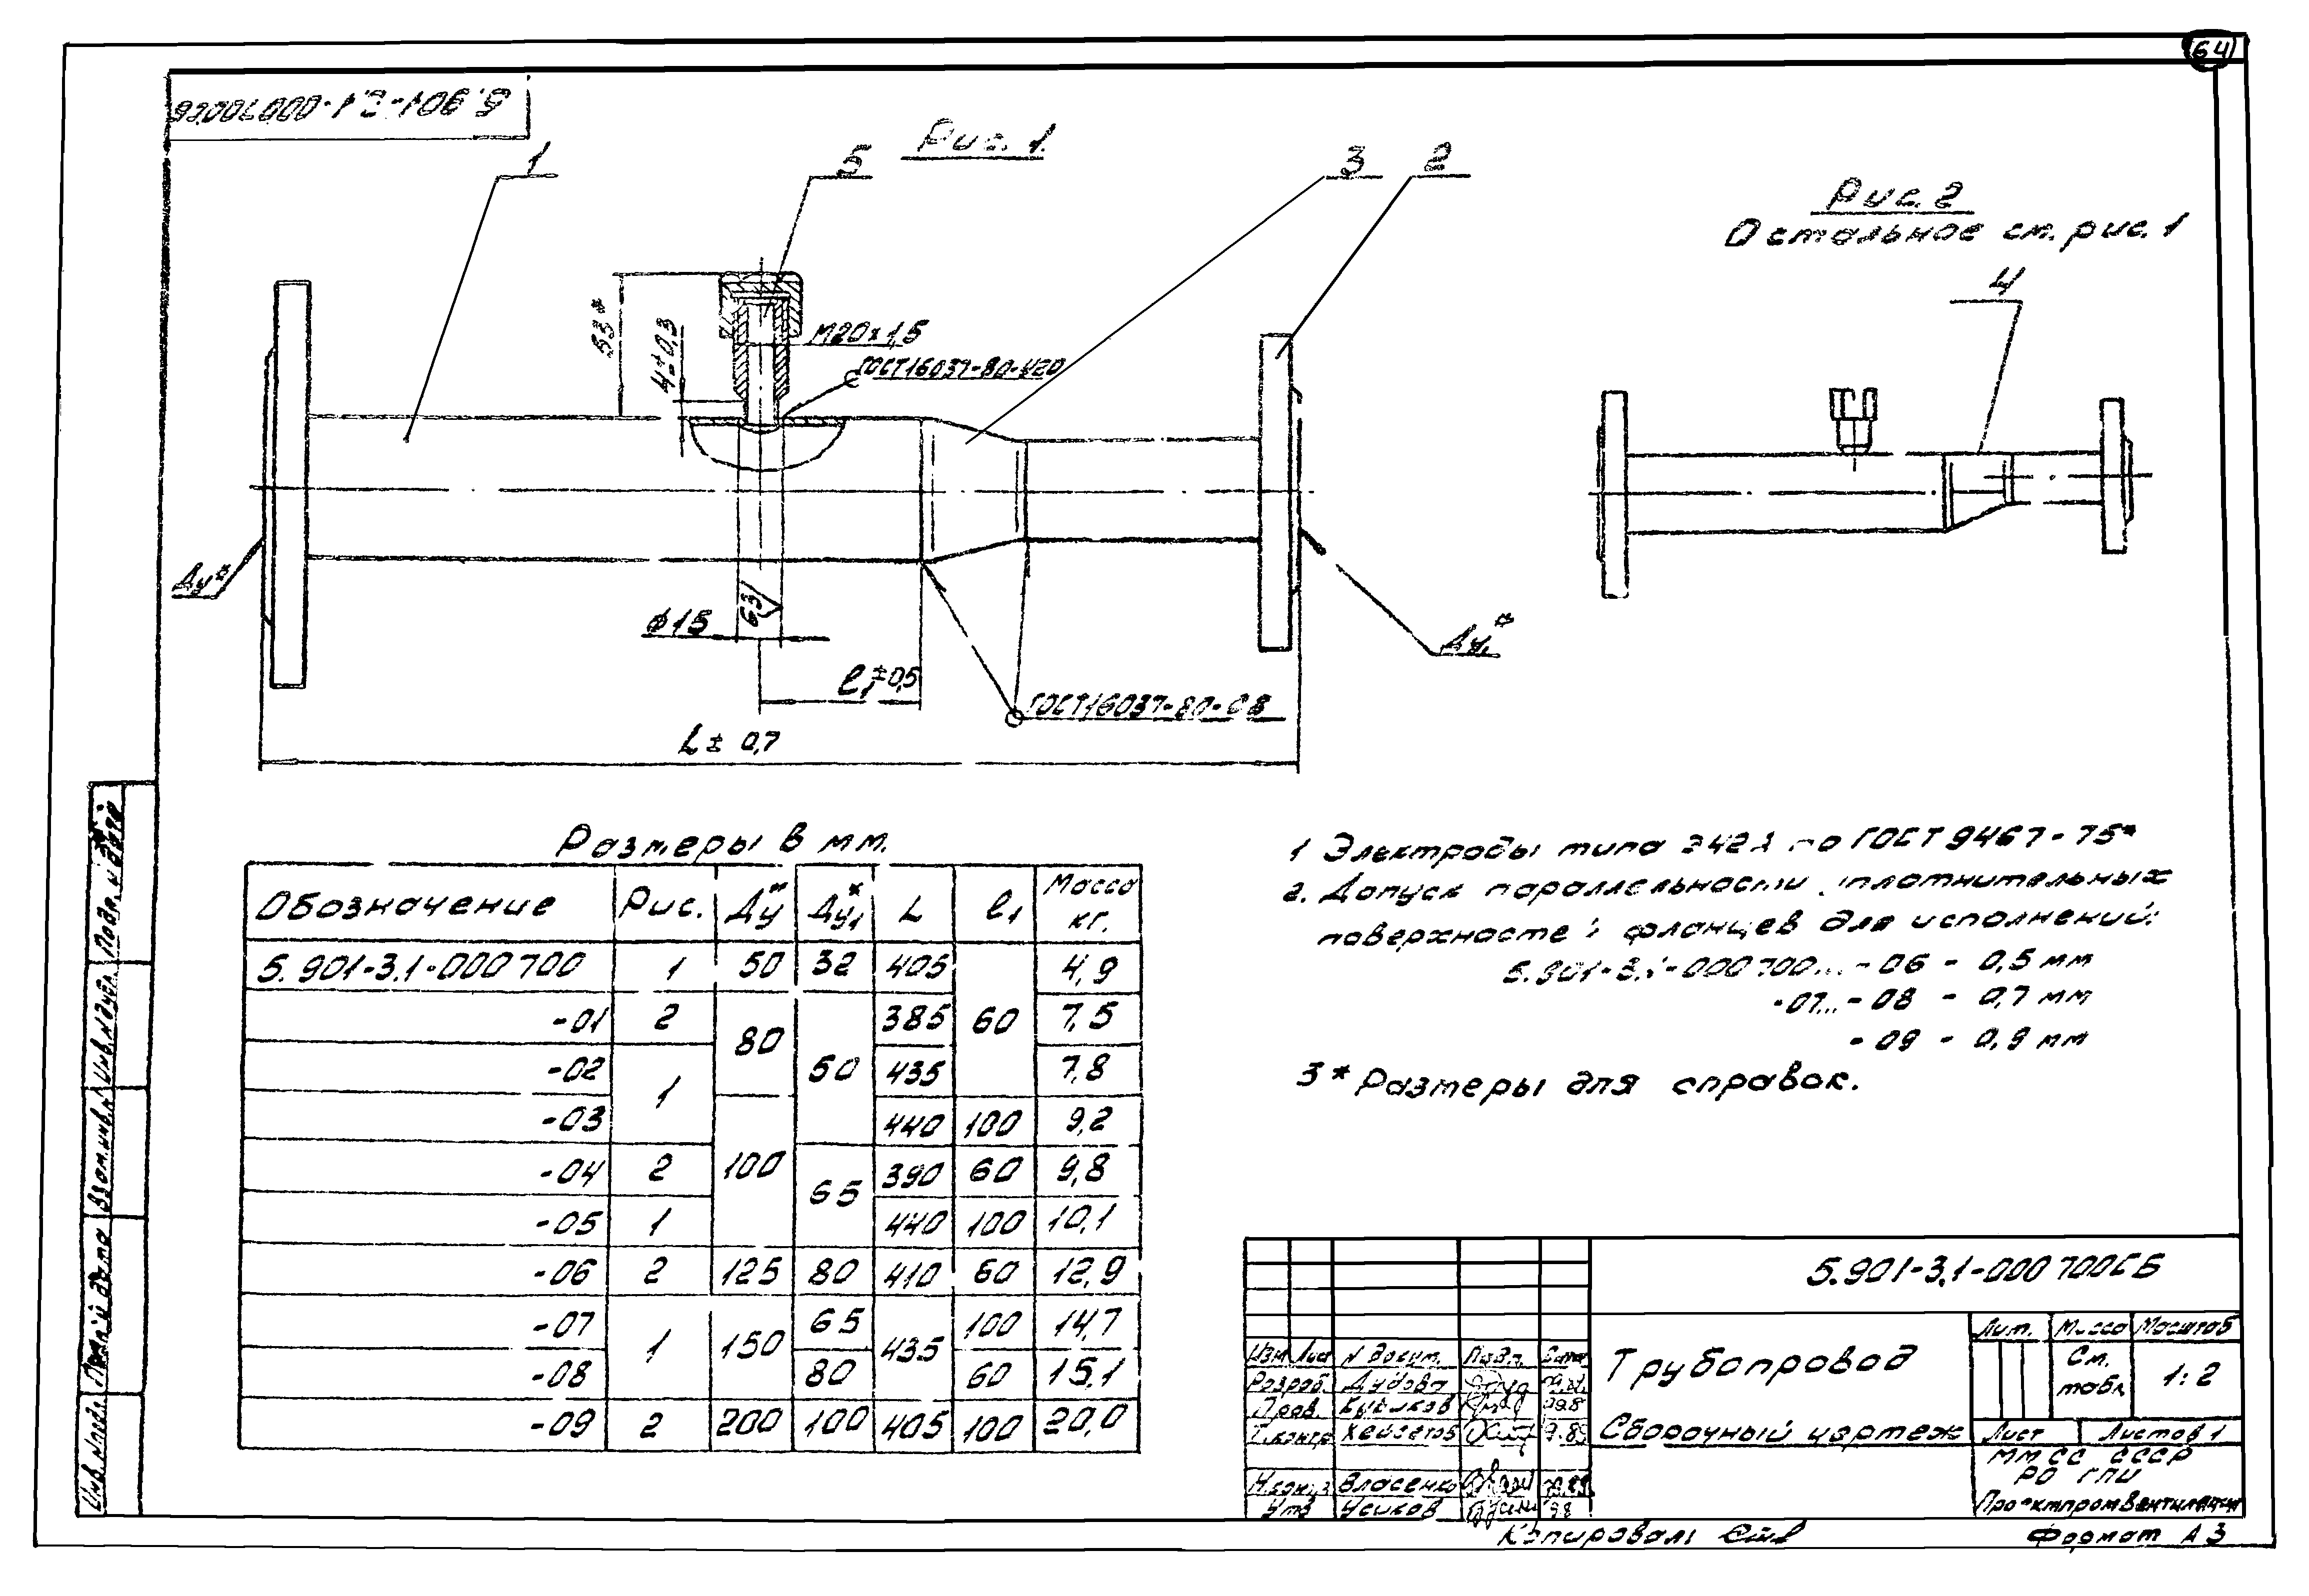 64
5.901-3.1-000700СБ
Рис. 1
1
5
3
2
Рис. 2
Остальное см. рис. 1
4
53*
4±0,3
М20х1,5
ГОСТ16037-80-У20
Ду*
Ф15
6,3
l₁±0,5
ГОСТ16037-80-С8
Ду₁*
L± 0,7
Размеры в мм.
Обозначение Рис. Ду* Ду₁* L l₁ Масса кг.
5.901-3.1-000700 1 50 32 405 60 4,9
-01 2 80 50 385 7,5
-02 1 435 7,8
-03 100 440 100 9,2
-04 2 65 390 60 9,8
-05 1 440 100 10,1
-06 2 125 80 410 60 12,9
-07 1 150 65 435 100 14,7
-08 80 60 15,1
-09 2 200 100 405 100 20,0
1 Электроды типа Э42А по ГОСТ 9467-75*
2. Допуск параллельности уплотнительных
поверхностей фланцев для исполнений:
5.901-3.1-000700...-06 - 0,5 мм
-07...-08 - 0,7 мм
-09 - 0,9 мм
3* Размеры для справок.
Подп. и дата
Инв. N дубл.
Взам. инв. N
Подп. и дата
Инв. N подл.
5.901-3.1-000700СБ
Изм Лист N докум. Подп. Дата
Разраб.
Пров.
Т.контр
Н.контр Власенко
Утв Усиков
Трубопровод
Сборочный чертеж
Лит. Масса Масштаб
См. табл. 1:2
Лист Листов 1
ММСС СССР
РО ГПИ
Проектпромвентиляция
Копировал:
Формат А3